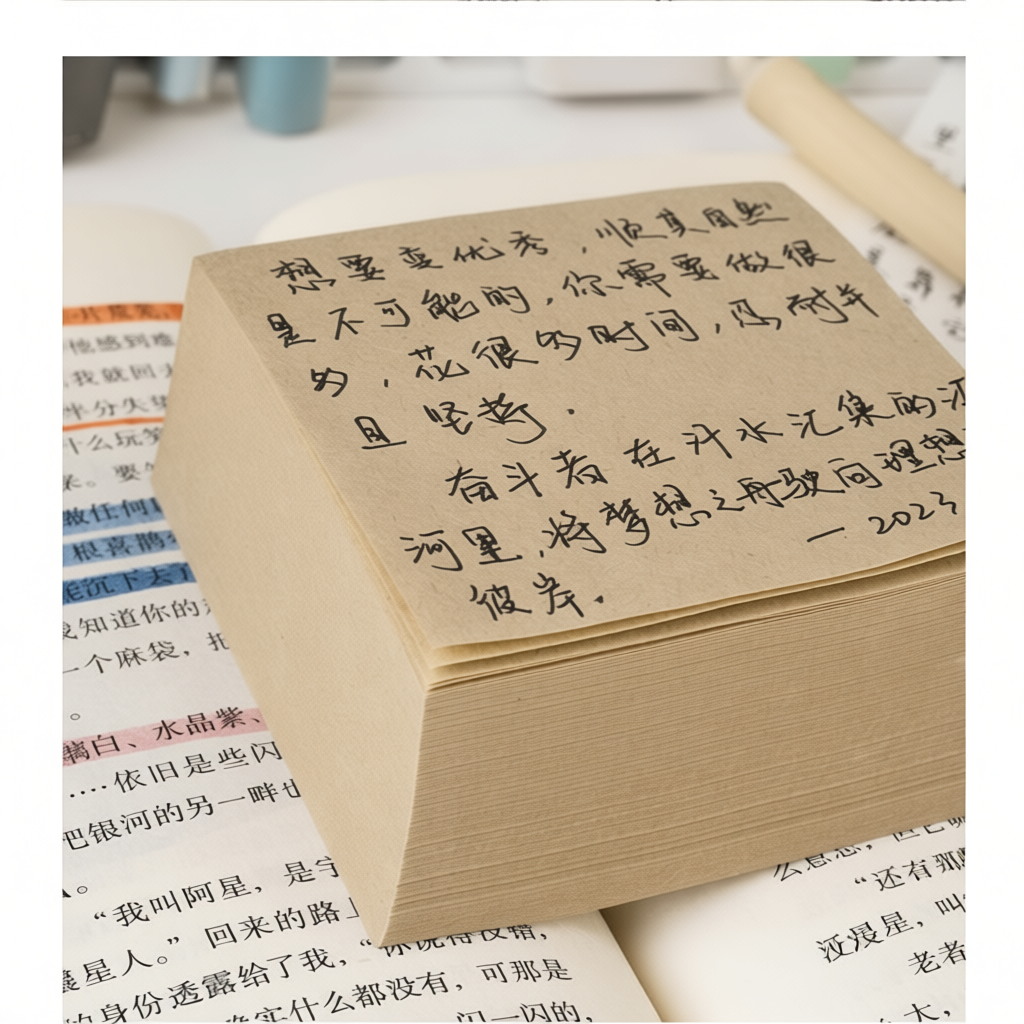 想要变优秀，顺其自然
是不可能的，你需要做很
多，花很多时间，
且坚
奋斗者在汗水汇集的
河里，将梦想之舟驶向理想
彼岸.
— 2023
他感到难
我就回去
半分失
什么玩笑
来。要
做任何
根喜鹊
能沉下去了
我知道你的
一个麻袋，把
。
白、水晶紫、
……依旧是些闪
把银河的另一畔也
。
“我叫阿星，是宇
星人。”回来的路上
的身份透露给了我，“你说得没错，
确实什么都没有，可那是
闪一闪的，
“还有
星，叫
老者
大，